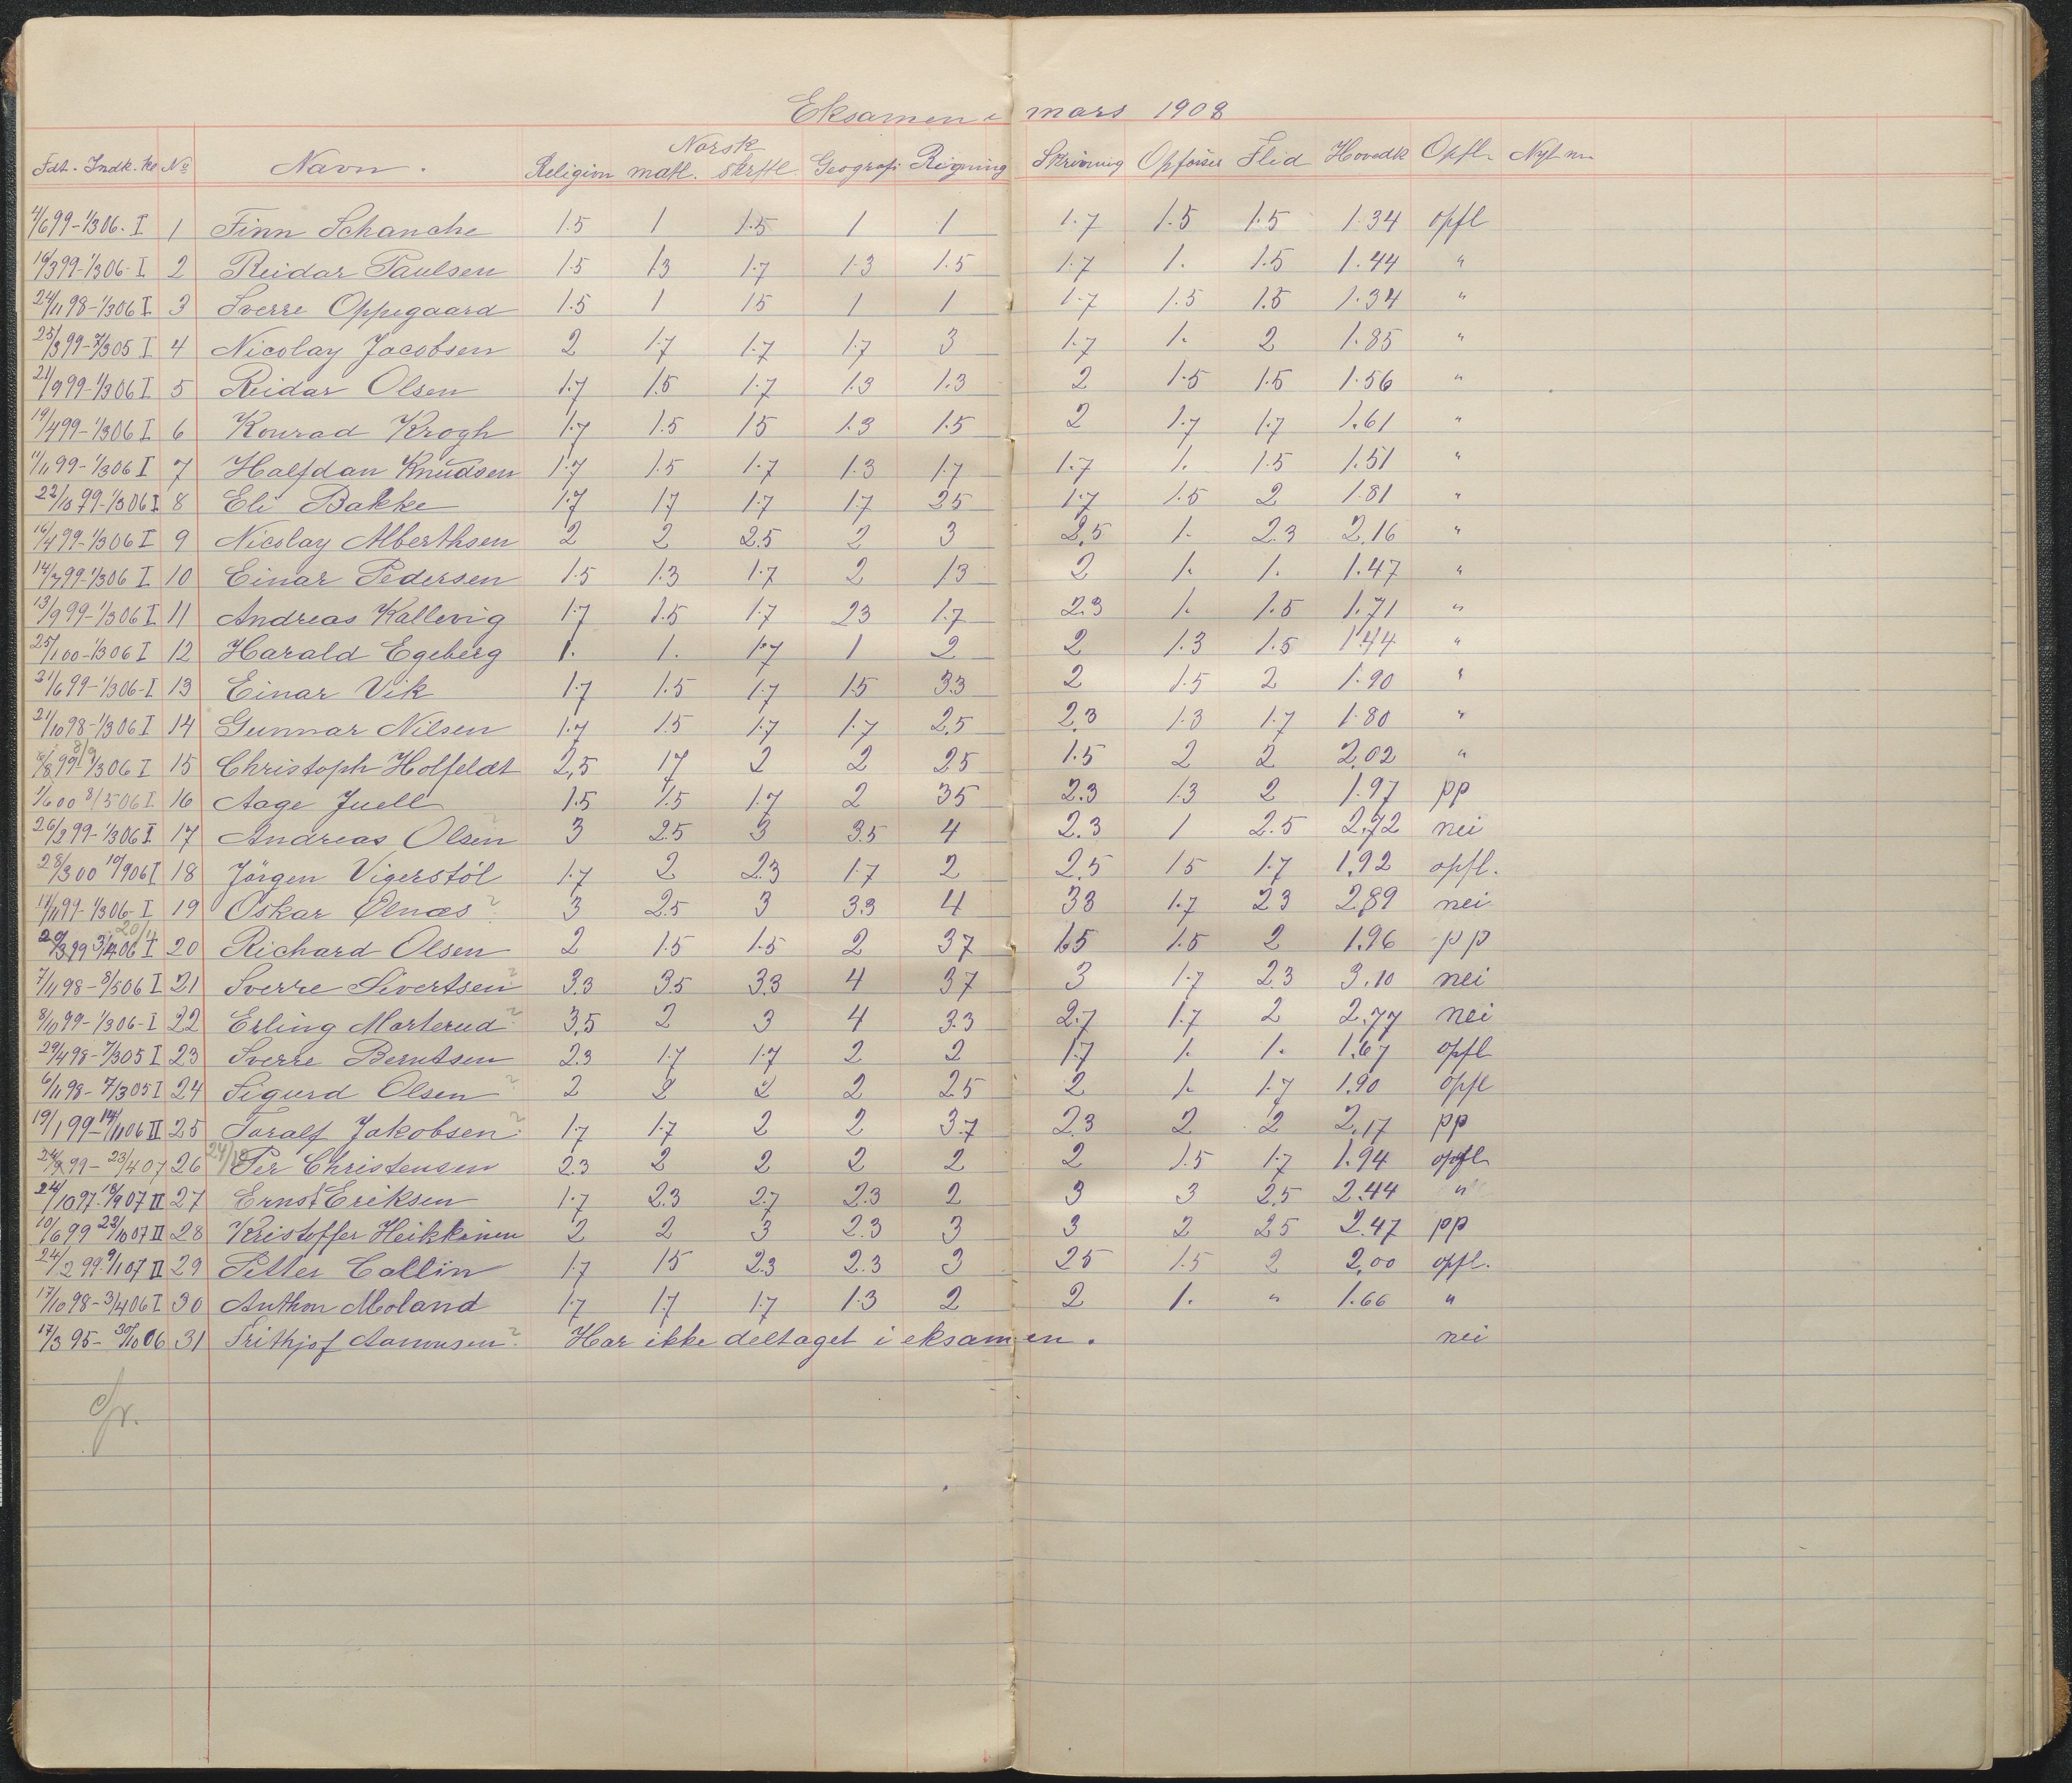 Eksamen i mars 1908
Norsk
Fdt. Indk. Kl No Navn. Religion mdtl. skrftl. Geografi Regning Skrivning Opførsel Flid Hovedk Opfl. Nyt nr.
4/6 99 - 1/3 06. I 1 Finn Schanche 1.5 1 1.5 1 1 1.7 1.5 1.5 1.34 opfl
16/3 99 - 1/3 06 - I 2 Reidar Paulsen 1.5 1.3 1.7 1.3 1.5 1.7 1. 1.5 1.44 "
24/11 98 - 1/3 06 I 3 Sverre Oppegaard 1.5 1 15 1 1 1.7 1.5 1.5 1.34 "
25/3 99 - 7/3 05 I 4 Nicolay Jacobsen 2 1.7 1.7 1.7 3 1.7 1. 2 1.85 "
21/9 99 - 1/3 06 I 5 Reidar Olsen 1.7 1.5 1.7 1.3 1.3 2 1.5 1.5 1.56 "
19/4 99 - 1/3 06 I 6 Konrad Krogh 1.7 1.5 15 1.3 1.5 2 1.7 1.7 1.61 "
11/11 99 - 1/3 06 I 7 Halfdan Knudsen 1.7 1.5 1.7 1.3 1.7 1.7 1. 1.5 1.51 "
22/10 99 - 1/3 06 I 8 Eli Bakke 1.7 1.7 1.7 1.7 25 1.7 1.5 2 1.81 "
16/4 99 - 1/3 06 I 9 Nicolay Alberthsen 2 2 2.5 2 3 2,5 1. 2.3 2,16 "
14/7 99 - 1/3 06 I 10 Einar Pedersen 1.5 1.3 1.7 2 13 2 1. 1. 1.47 "
13/9 99 - 1/3 06 I 11 Andreas Kallevig 1.7 1.5 1.7 23 1.7 2.3 1. 1.5 1.71 "
25/1 00 - 1/3 06 I 12 Harald Egeberg 1. 1. 1.7 1 2 2 1.3 1.5 1.44 "
21/6 99 - 1/3 06 - I 13 Einar Vik 1.7 1.5 1.7 1.5 3.3 2 1.5 2 1.90 "
21/10 98 - 1/3 06 I 14 Gunnar Nilsen 1.7 1.5 1.7 1.7 2.5 2.3 1.3 1.7 1.80 "
6/8 99 - 1/3 06 I 15 Christoph Holfeldt 2,5 17 2 2 25 1.5 2 2 2,02 "
1/6 00 8/5 06 I 16 Aage Juell 1.5 1.5 1.7 2 35 2.3 1.3 2 1.97 pp
26/2 99 - 1/3 06 I 17 Andreas Olsen ? 3 2.5 3 3.5 4 2.3 1 2.5 2,72 nei
28/3 00 10/9 06 I 18 Jörgen Vigerstöl 1.7 2 2.3 1.7 2 2,5 15 1.7 1,92 opfl.
14/11 99 - 1/3 06 - I 19 Oskar Ølnæs ? 3 2.5 3 3.3 4 33 1.7 23 2,89 nei
20/3 99 3/4 06 I 20 Richard Olsen 2 1.5 1.5 2 37 1.5 1.5 2 1.96 pp
7/11 98 - 8/5 06 I 21 Sverre Sivertsen ? 3.3 3.5 3.3 4 37 3 1.7 2.3 3.10 nei
8/10 99 - 1/3 06 - I 22 Erling Morterud ? 3,5 2 3 4 3.3 2.7 1.7 2 2,77 nei
29/4 98 - 7/3 05 I 23 Sverre Berntsen 2.3 1.7 1.7 2 2 1.7 1. 1. 1.67 opfl
6/11 98 - 7/3 05 I 24 Sigurd Olsen ? 2 2 2 2 25 2 1. 1.7 1.90 opfl
19/1 99 - 14/11 06 II 25 Toralf Jakobsen ? 1.7 1.7 2 2 3.7 2.3 2 2 2,17 pp
24/9 99 - 23/4 07 26 Per Christensen 2.3 2 2 2 2 2 1.5 1.7 1.94 opfl
24/10 97 - 18/9 07 II 27 Ernst Eriksen 1.7 2.3 2.7 2.3 2 3 3 2,5 2.44 "
10/6 99 22/10 07 II 28 Kristoffer Heikkinen 2 2 3 2.3 3 3 2 25 2.47 pp
24/2 99 - 9/1 07 II 29 Petter Collin 1.7 15 2.3 2.3 3 25 1.5 2 2,00 opfl.
17/10 98 - 3/4 06 I 30 Anthon Moland 1.7 1.7 1.7 1.3 2 2 1. " 1.66 "
17/3 95 - 30/10 06 31 Frithjof Aanonsen ? Har ikke deltaget i eksamen. nei